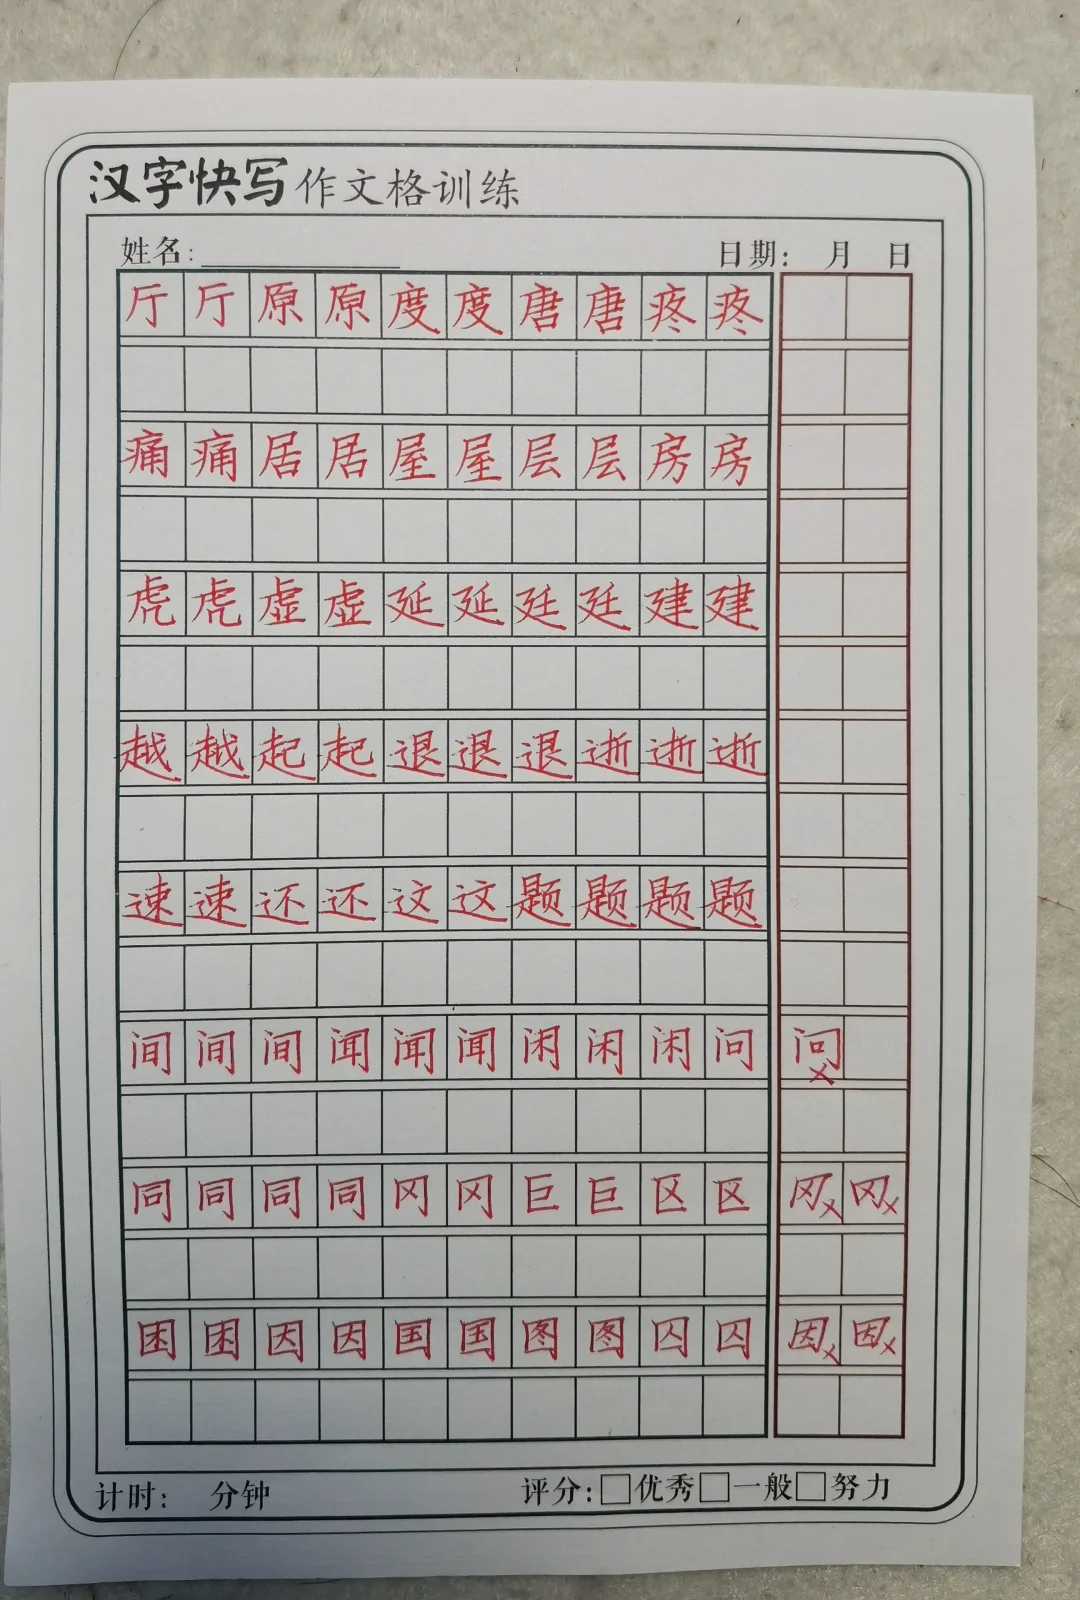 汉字快写作文格训练
姓名: 日期: 月 日
厅厅原原度度唐唐疼疼
痛痛居居屋屋层层房房
虎虎虚虚延延廷廷建建
越越起起退退退逝逝逝
速速还还这这题题题题
间间间闻闻闻闲闲闲问 问×
同同同同冈冈巨巨区区 冈×冈×
困困因因国国图图囚囚 因×因×
计时: 分钟 评分:□优秀□一般□努力